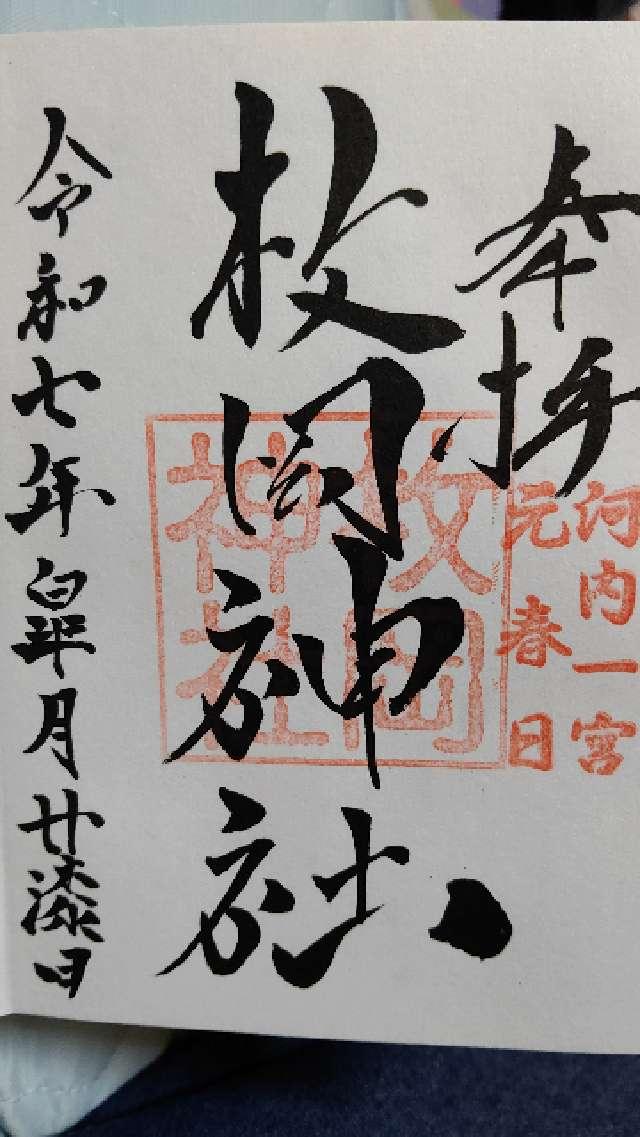 奉拝
河内一宮
元春日
枚岡神社
枚岡神社
令和七年皐月廿漆日